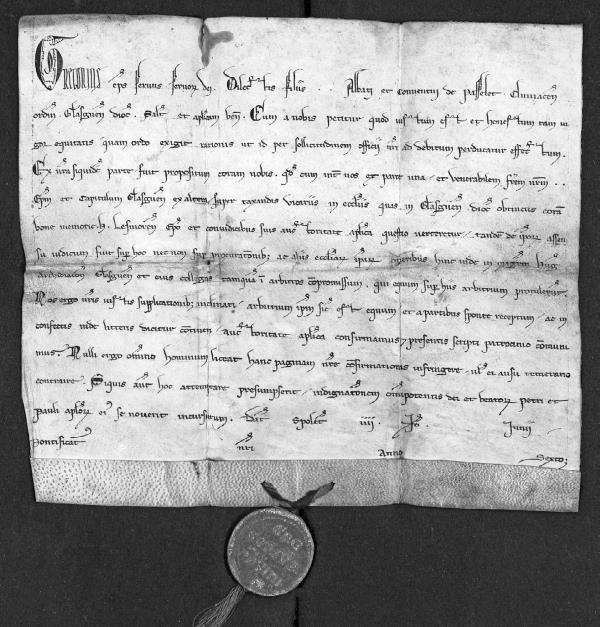 Gregorius ep̄s servus servoꝝ dei. Dilectis filiis . . Abbati et conventui de Passelet Cluniaceñ
ordiñ Glasgueñ dioc̄. Salt̄ et apl̄icam beñ. Cum a nobis petitur quod iustum est et honestum tam vi
gor equitatis quam ordo exigit rationis ut id per sollicitudinem officii nr̄i ad debitum perducatur effectum.
Ex vr̄a siquidem parte fuit propositum coram nobis. qd̄ cum inter vos ex parte una et venerabilem fr̄em nr̄m . .
Ep̄m et Capitulum Glasgueñ ex altera super taxandis vicariis in ecclesiis quas in Glasgueñ dioc̄ obtinetis coram
bone memorie . H. Lesmoreñ Ep̄o et coniudicibus suis auctoritate apl̄ica questio verteretur. tandem de ipsoꝝ assen
su iudicum fuit super hoc necnon super procurationibus ac aliis ecclesiarum ipsarum oneribus hinc inde in magistrum
archidiaconum Glasgueñ et eius collegas tamquam in arbitros compromissum. qui equum super hiis arbitrium protulerunt.
Nos ergo vr̄is iustis supplicationibus inclinati arbitrium ip̄m sic̄ est equum et a partibus sponte receptum ac in
confectis inde litteris dicitur contineri auctoritate apl̄ica confirmamus et presentis scripti patrocinio communi
mus. Nulli ergo omnino hominum liceat hanc paginam nr̄e confirmationis infringere vel ei ausu temerario
contraire. Siquis aut̄ hoc attemptare presumpserit indignationem omnipotentis dei et beatoꝝ petri et
pauli apl̄oꝝ eius se noverit incursurum. Dat̄ Spolet̄ iiii . Id̄ . Iunii
Pontificat̄ nr̄i Anno Sexto.